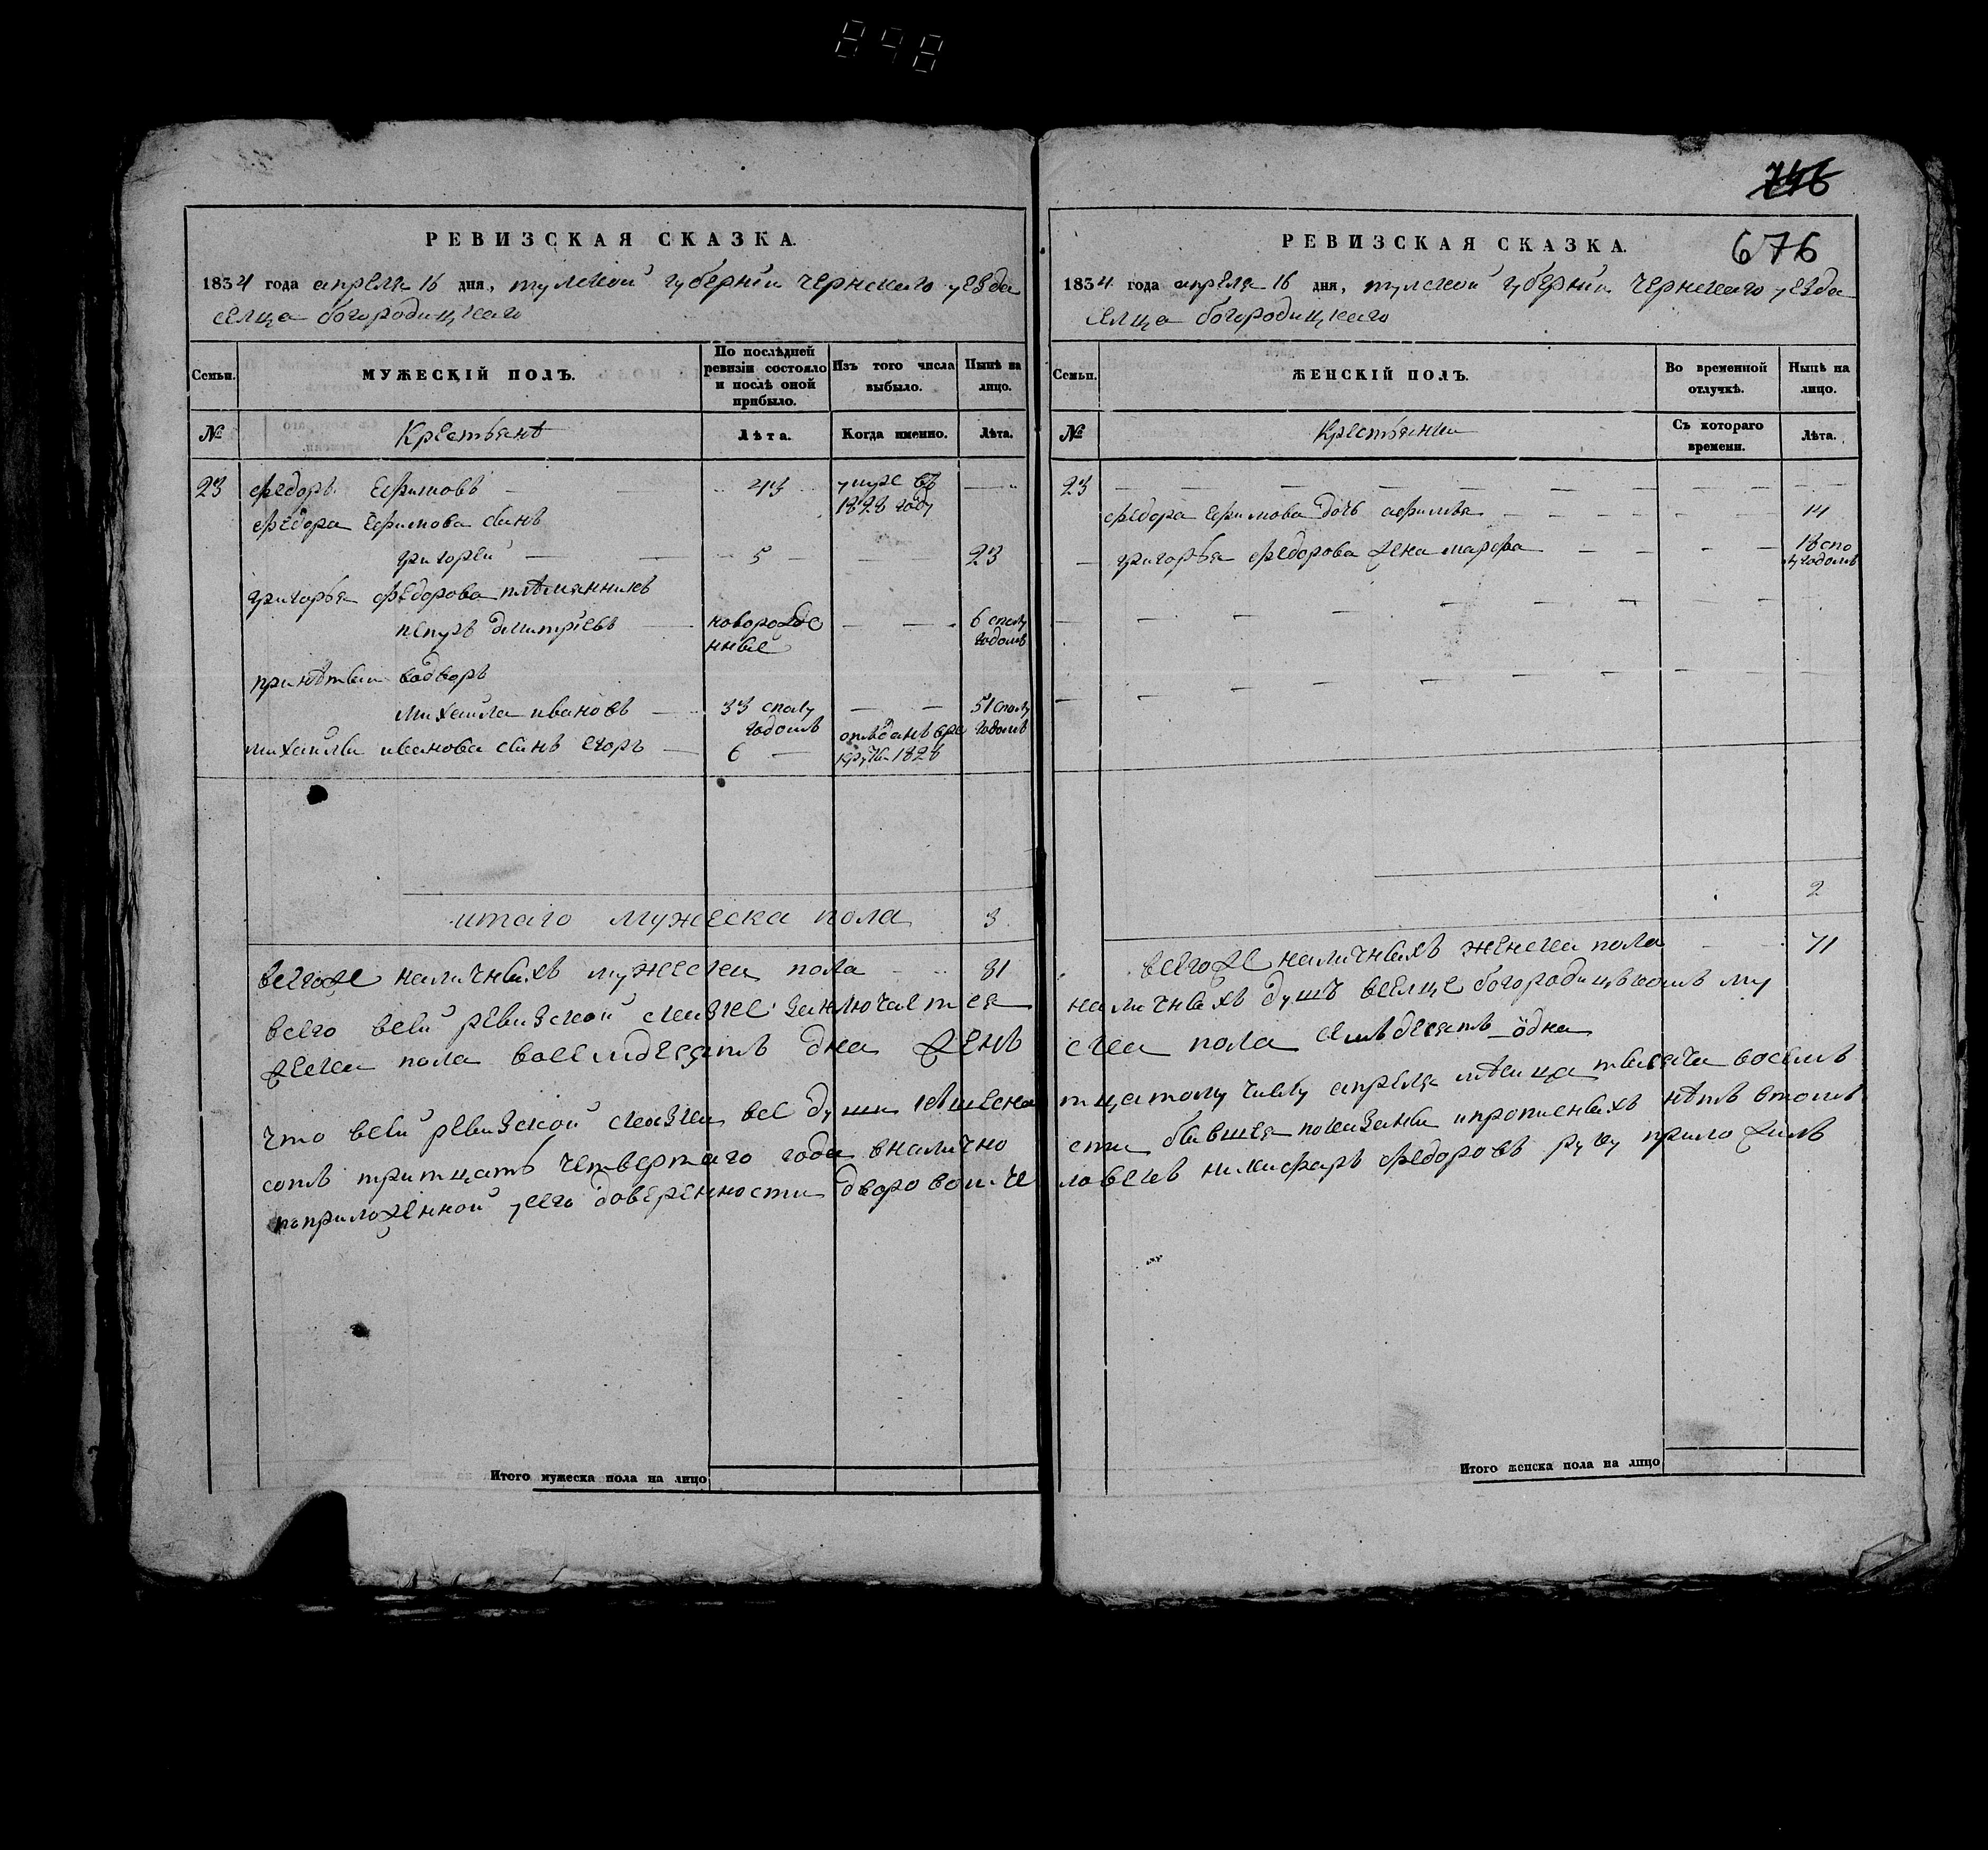 898
746
676
РЕВИЗСКАЯ СКАЗКА.
1834 года апреля 16 дня, тулской губернїи чернскаго уезда
селца богородицкаго
Семьи.
МУЖЕСКІЙ ПОЛЪ.
По послѣдней ревизіи состояло и послѣ оной прибыло.
Изъ того числа выбыло.
Нынѣ на лицо.
№
Крестьянѣ
Лѣта.
Когда именно.
Лѣта.
23 федоръ Ефимовъ — 43 умре въ 1828 году —
федора Ефимова сынъ
григорей — 5 — 23
григорья федорова племянникъ
петръ дмитрїевъ — новорожде нные — — 6 спалу годомъ
принятыи водворъ
михаила ивановъ — 33 спалу годомъ — — 51 спалу годомъ
михаилы иванова сынъ егоръ — 6 — отъданъ вре круты 1828
итаго мужеска пола 3
всегоже наличныхъ мужеска пола 81
всего всей ревизской сказке заключается
жеска пола восемдесятъ дна женъ
что всей ревизской сказки все души
сотъ тритцатъ четвертаго года вналично
поприложенной уего доверенности дворовои че
Итого мужеска пола на лицо
РЕВИЗСКАЯ СКАЗКА.
1834 года апреля 16 дня, тулской губернїи чернскаго уезда
селца богородицкаго
Семьи.
ЖЕНСКІЙ ПОЛЪ.
Во временной отлучкѣ.
Нынѣ на лицо.
№
Крестьянки
Съ котораго времени.
Лѣта.
23 — — — — — — — — —
федора Ефимова дочь афимья — — — — — 14
— григорья федорова жена марфа — — — — 18 спо лугодомъ
2
всегоже наличныхъ женска пола 71
наличныхъ душъ вселце богородицкомъ му
ска пола семьдесятъ одна
тцатому числу апреля мѣсица тысяча восемъ
сти бывшея показаны ипрописныхъ нѣтъ втомъ
ловекъ никифаръ федоровъ руку приложилъ
Итого женска пола на лицо